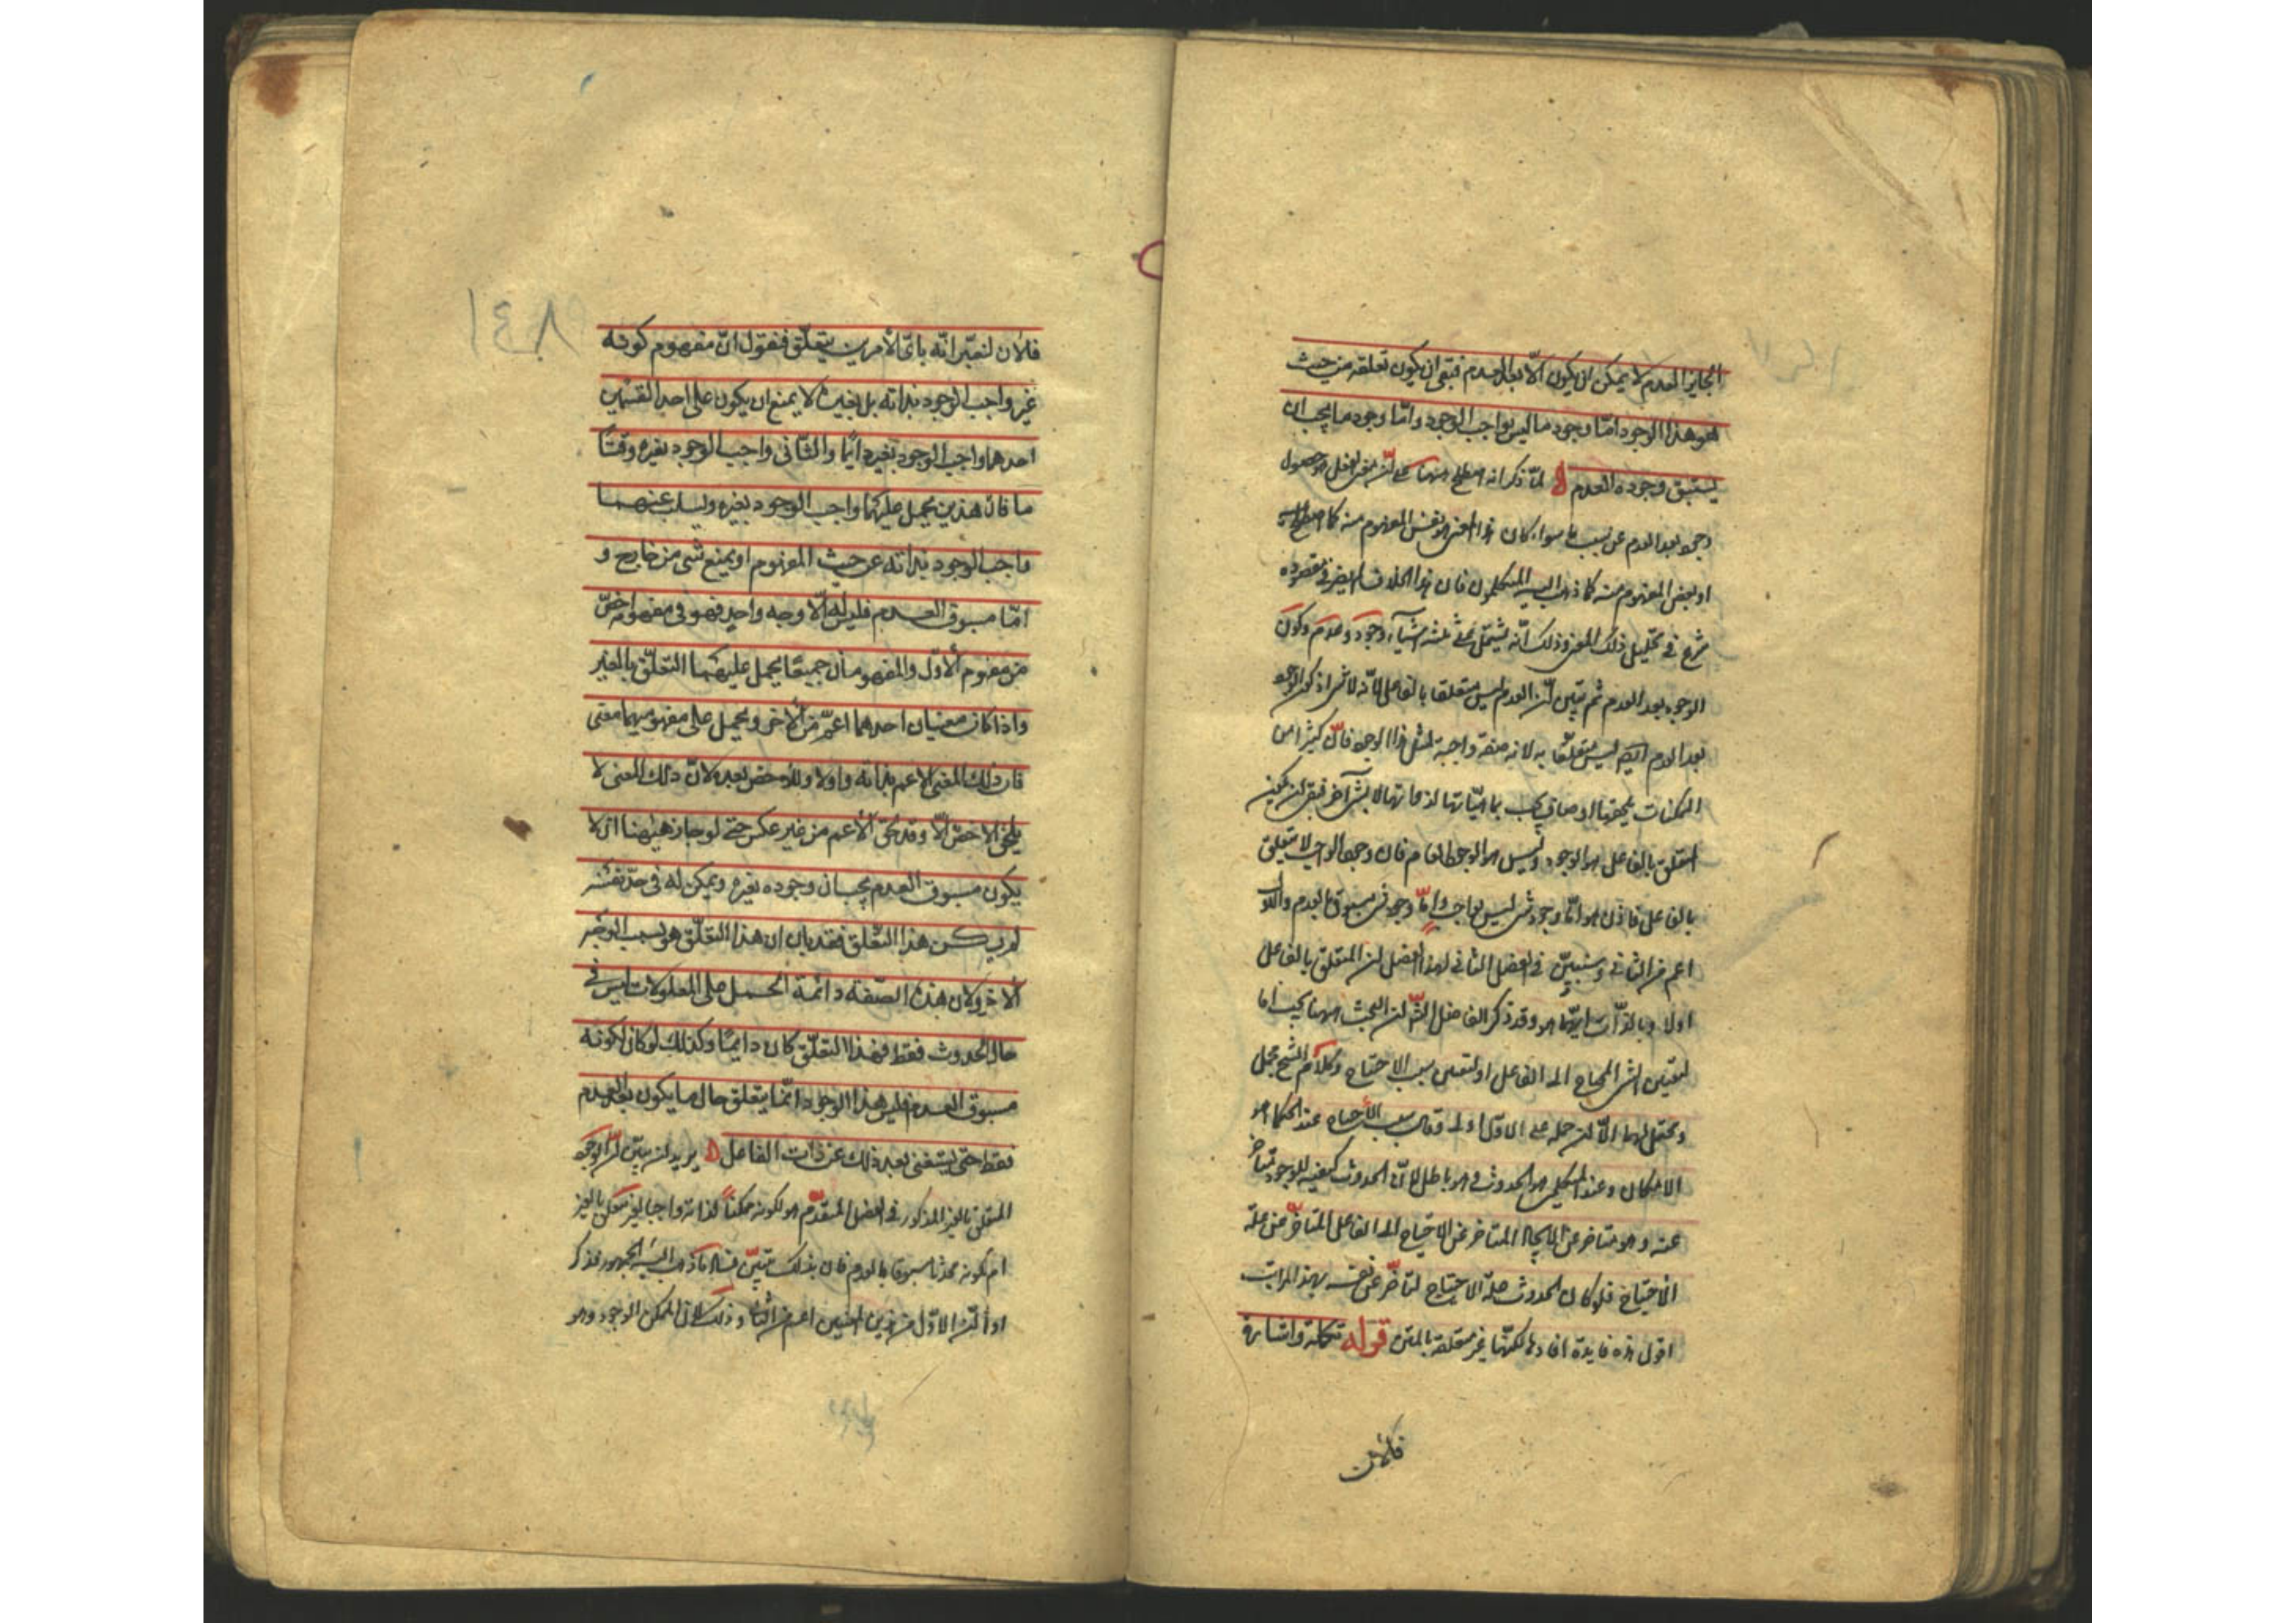 الجايز العدم لا يمكن ان يكون الّا بعد العدم فبقى ان يكون تعلقه من حيث
هو هذا الوجود امّا وجود ما ليس بواجب الوجود وامّا وجود ما يجب ان
يسبق وجوده العدم لمّا ذكر انه اصطلح ههنا على انّ معنى الفعل هو حصول
وجود بعد العدم عن سبب ما سواء كان هذا المعنى هو نفس المفهوم منه كما اصطلح
او بعض المفهوم منه كما ذهب اليه المتكلمون فان هذا الخلاف لا يضر في مقصوده
شرع في تحليل ذلك المعنى وذلك انّه يشتمل على ثلثة اشياء وجود وعدم وكون
الوجود بعد العدم ثم تبيّن انّ العدم ليس متعلقا بالفاعل لانّه لا شئ وان كون الوجود
بعد العدم ايضا ليس متعلقا به لانه صفة واجبة لمثل هذا الوجود فانّ كثيرا من
الممكنات يلحقها اوصاف يجب بماهيّاتها لذواتها لا بشئ آخر فبقى ان يكون
المتعلق بالفاعل هو الوجود وليس هو الوجود العام فان وجود الواجب لا يتعلق
بالفاعل فاذن هو امّا وجود شئ ليس بواجب وامّا وجود شئ مسبوق بالعدم والاول
اعم من الثاني وسنبيّن في الفصل الثاني لهذا الفصل ان المتعلق بالفاعل
اولا وبالذّات ايّهما هو وقد ذكر الفاضل الشّ ان البحث ههنا يجب اما
لتعيين الشئ المحتاج الى الفاعل او لتعيين سبب الاحتياج وكلام الشيخ مجمل
ومحتمل لهما الّا ان حمله على الاوّل اولى وقال سبب الاحتياج عند الحكماء هو
الامكان وعند المتكلمين هو الحدوث وهو باطل لانّ الحدوث كيفية للوجود متأخرة
عنه وهو متاخر عن الايجاد المتاخر عن الاحتياج الى الفاعل المتاخّر عن علة
الاحتياج فلو كان الحدوث علّة الاحتياج لتأخّر عن نفسه بهذه المراتب
اقول هذه فايدة افادها لكنّها غير متعلقة بالمتن قوله تكملة واشارة
فالآن
فالآن لنعتبر انّه بايّ الأمرين يتعلّق فنقول انّ مفهوم كونه
غير واجب الوجود بذاته بل بغيره لا يمنع ان يكون على احد القسمين
احدهما واجب الوجود بغيره دائما والثانى واجب الوجود بغيره وقتًا
ما فان هذين يحمل عليهما واجب الوجود بغيره ويسلب عنهما
واجب الوجود بذاته من حيث المفهوم او يمنع شى من خارج و
امّا مسبوق العدم فليس له الّا وجه واحد فهو في مفهومه اخصّ
من مفهوم الأوّل والمفهومان جميعًا يحمل عليهما التعلّق بالغير
واذا كان معنيان احدهما اعمّ من الآخر ويحمل على مفهوميهما معنى
فان ذلك المعنى للاعم بذاته واولا وللاخص بعده لانّ ذلك المعنى لا
يلحق الاخصّ الّا وقد لحق الأعم من غير عكس حتى لو جاز ههنا ان لا
يكون مسبوق العدم يجب ان وجوده بغيره ويمكن له في حدّ نفسه
لم يكن هذا التعلّق فقد بان ان هذا التعلّق هو بسبب الوجه
الآخر ولان هذه الصّفة دائمة الحمل على المعلولات ليس في
حال الحدوث فقط فهذا التعلّق كان دايمًا وكذلك لو كان لكونه
مسبوق العدم فليس هذا الوجود انّما يتعلق حال ما يكون بعد العدم
فقط حتى يستغنى بعد ذلك عن ذات الفاعل يريد ان يبيّن انّ الوجود
المتعلق بالغير المذكور في الفصل المتقدّم هو لكونه ممكناً لذاته واجبا لغيره متعلق بالغير
ام لكونه محدثا مسبوقا بالعدم فان بذلك يتبيّن فساد ما ذهب اليه الجمهور فذكر
اولا انّ الاوّل من هذين المعنيين اعم من الثاني وذلك لان الممكن الوجود وهو